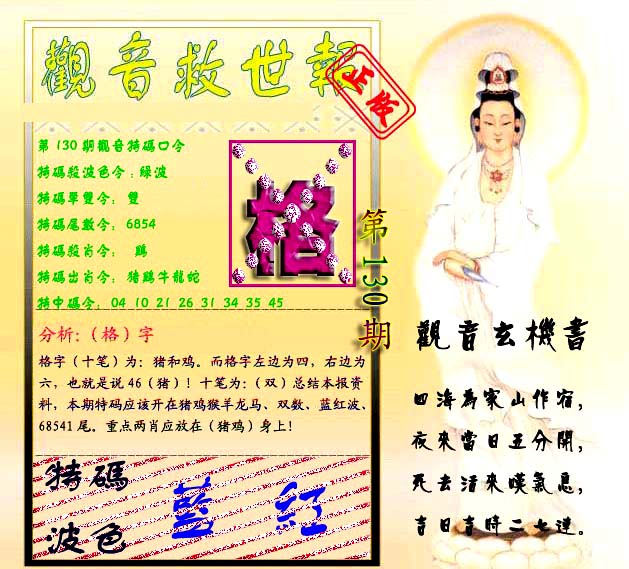 觀音救世報
正版
第130期觀音特碼口令
特碼殺波色令：綠波
特碼單雙令： 雙
特碼尾數令： 6854
特碼殺肖令： 鷄
特碼出肖令： 猪鷄牛龍蛇
特中碼令： 04 10 21 26 31 34 35 45
格
第130期
分析:（格）字
格字（十笔）为：猪和鸡。而格字左边为四，右边为
六，也就是说46（猪）！十笔为：（双）总结本报资
料，本期特码应该开在猪鸡猴羊龙马、双数、蓝红波、
68541尾。重点两肖应放在（猪鸡）身上！
特碼
波色
藍 紅
觀音玄機書
四海為家山作宿，
夜來當日五分開，
死去活來嘆氣息，
吉日吉時二七連。